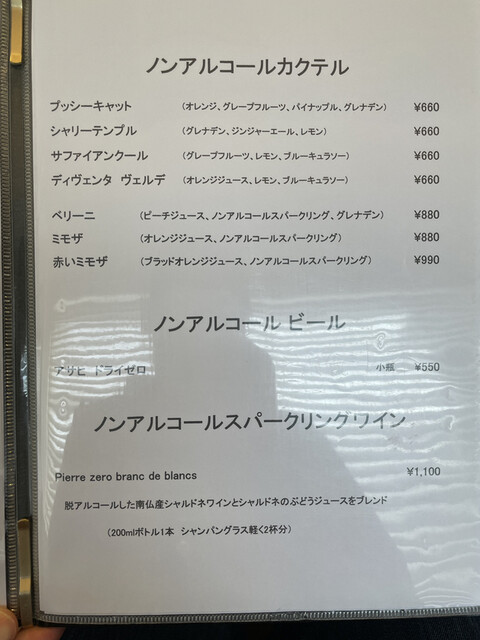 ノンアルコールカクテル
プッシーキャット (オレンジ、グレープフルーツ、パイナップル、グレナデン) ¥660
シャリーテンプル (グレナデン、ジンジャーエール、レモン) ¥660
サファイアンクール (グレープフルーツ、レモン、ブルーキュラソー) ¥660
ディヴェンタ ヴェルデ (オレンジジュース、レモン、ブルーキュラソー) ¥660
ベリーニ (ピーチジュース、ノンアルコールスパークリング、グレナデン) ¥880
ミモザ (オレンジジュース、ノンアルコールスパークリング) ¥880
赤いミモザ (ブラッドオレンジジュース、ノンアルコールスパークリング) ¥990
ノンアルコール ビール
アサヒ ドライゼロ 小瓶 ¥550
ノンアルコールスパークリングワイン
Pierre zero branc de blancs ¥1,100
脱アルコールした南仏産シャルドネワインとシャルドネのぶどうジュースをブレンド
(200mlボトル1本 シャンパングラス軽く2杯分)